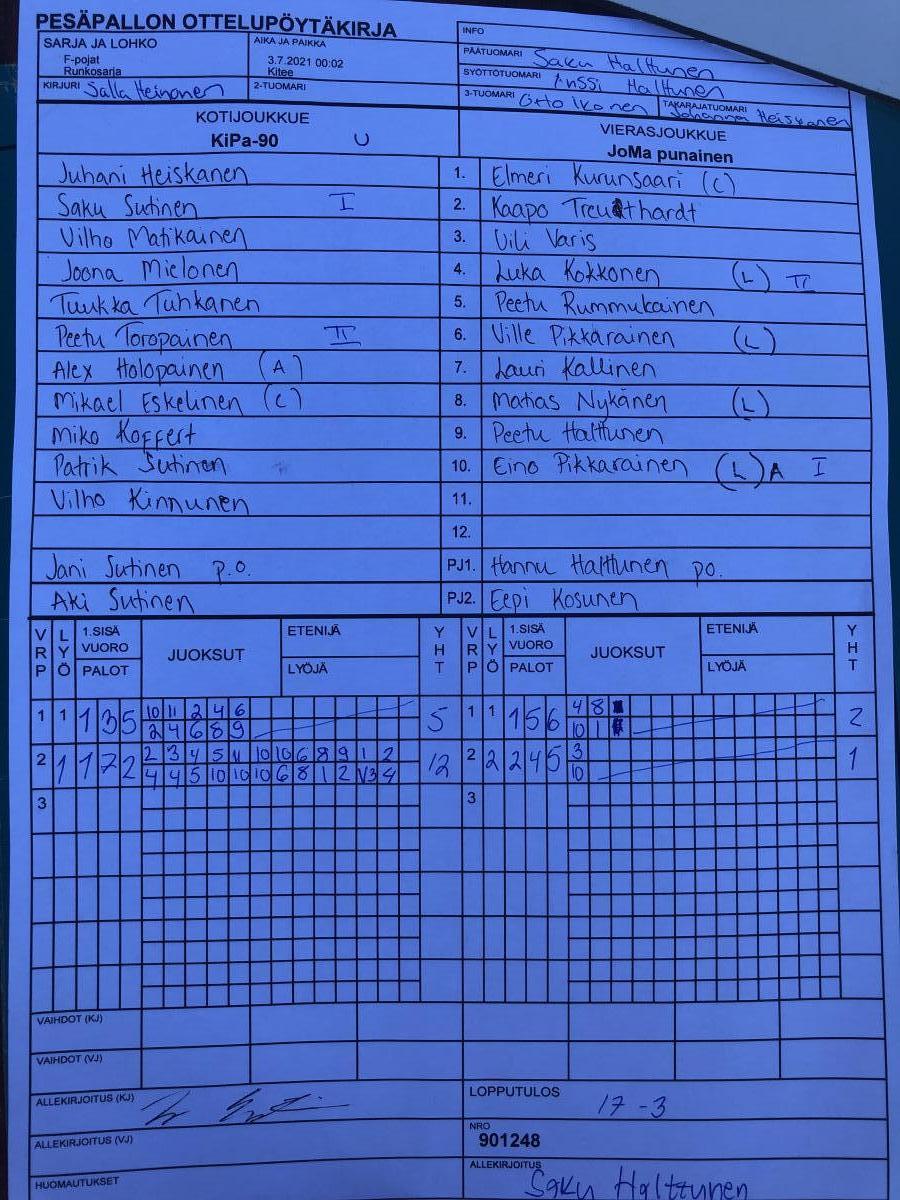 PESÄPALLON OTTELUPÖYTÄKIRJA
INFO
SARJA JA LOHKO
F-pojat
Runkosarja
AIKA JA PAIKKA
3.7.2021 00:02
Kitee
PÄÄTUOMARI Saku Halttunen
SYÖTTÖTUOMARI Anssi Halttunen
KIRJURI Salla Heinonen
2-TUOMARI
3-TUOMARI Otto Ikonen
TAKARAJATUOMARI Johanna Heiskanen
KOTIJOUKKUE
KiPa-90 U
VIERASJOUKKUE
JoMa punainen
Juhani Heiskanen 1. Elmeri Kurunsaari (C)
Saku Sutinen I 2. Kaapo Treuthardt
Vilho Matikainen 3. Vili Varis
Joona Mielonen 4. Luka Kokkonen (L) II
Tuukka Tuhkanen 5. Peetu Rummukainen
Peetu Toropainen II 6. Ville Pikkarainen (L)
Alex Holopainen (A) 7. Lauri Kallinen
Mikael Eskelinen (C) 8. Matias Nykänen (L)
Miko Koffert 9. Peetu Halttunen
Patrik Sutinen 10. Eino Pikkarainen (L) A I
Vilho Kinnunen 11.
12.
Jani Sutinen p.o. PJ1. Hannu Halttunen po.
Aki Sutinen PJ2. Eepi Kosunen
VRP LYÖ 1.SISÄ VUORO PALOT JUOKSUT ETENIJÄ LYÖJÄ YHT VRP LYÖ 1.SISÄ VUORO PALOT JUOKSUT ETENIJÄ LYÖJÄ YHT
1 1 1 3 5 10 11 2 4 6 5 1 1 1 5 6 4 8 2
2 4 6 8 9 10 1
2 1 1 7 2 2 3 4 5 11 10 10 6 8 9 1 2 12 2 2 2 4 5 3 1
4 4 5 10 10 10 6 8 1 2 V3 4 10
3 3
VAIHDOT (KJ)
VAIHDOT (VJ)
ALLEKIRJOITUS (KJ)
LOPPUTULOS
17-3
ALLEKIRJOITUS (VJ)
NRO
901248
HUOMAUTUKSET
ALLEKIRJOITUS
Saku Halttunen